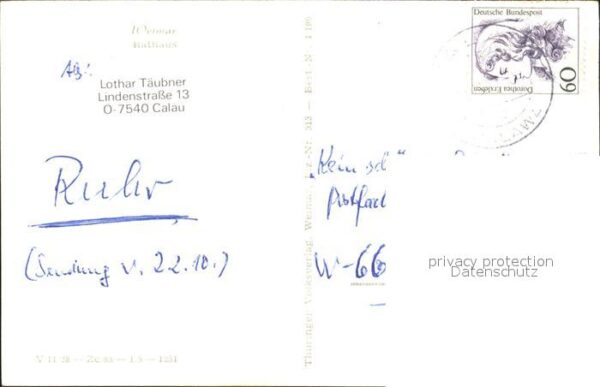 Weimar
Rathaus
Abs:
Lothar Täubner
Lindenstraße 13
O-7540 Calau
Ruhr
(Sendung v. 22.10.)
V 11 28
Thüringer Volksverlag Weimar
Deutsche Bundespost
60
Dorothea Erxleben
"Kein
Postfach
W-66
privacy protection
Datenschutz